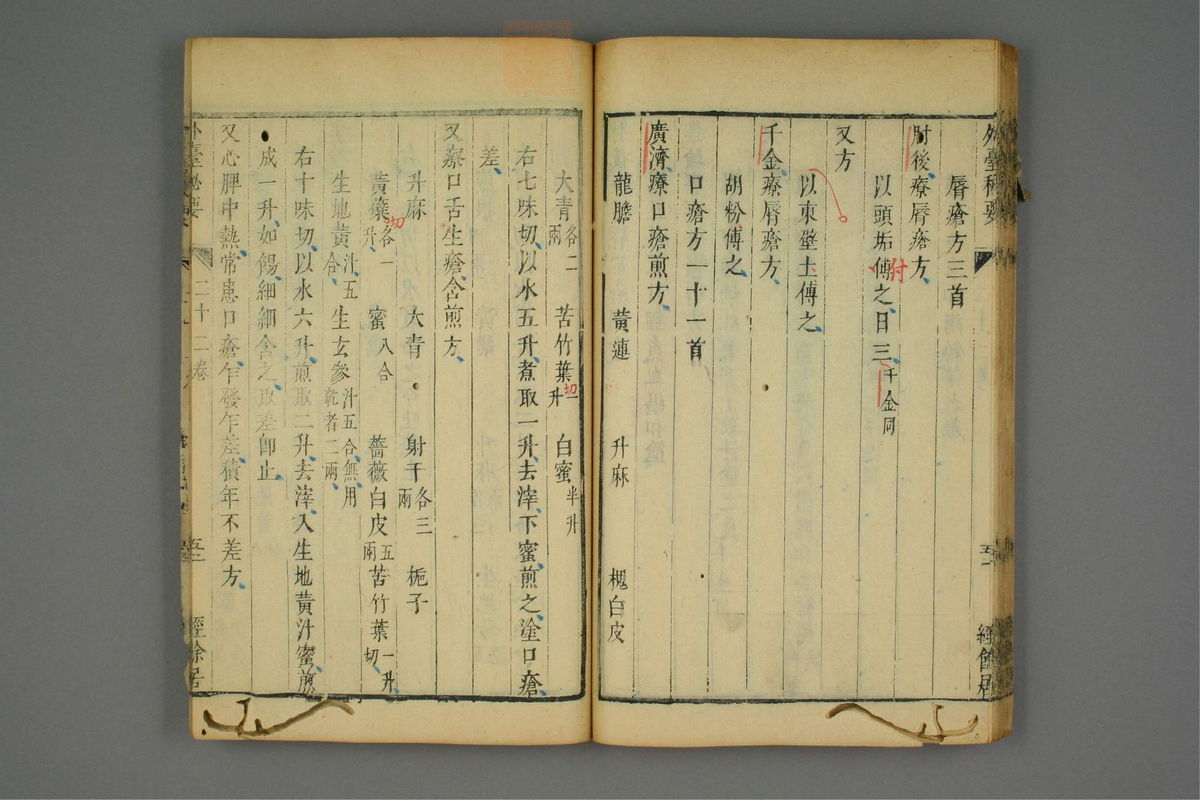 外臺秘要
脣瘡方三首
肘後療脣瘡方
以頭垢傅之日三千金同
附
又方
以東壁土傅之
千金療脣瘡方
胡粉傅之
口瘡方一十一首
廣濟療口瘡煎方
龍膽 黃連 升麻 槐白皮
五一 經餘居
大青各二兩 苦竹葉一升切 白蜜半升
右七味切以水五升煮取二升去滓下蜜煎之塗口瘡
差
又療口舌生瘡含煎方
升麻 大青 射干各三兩 梔子
黃蘗各一升切 蜜八合 薔薇白皮五兩 苦竹葉一升切
生地黃汁五合 生玄參汁五合無用乾者二兩
右十味切以水六升煎取二升去滓入生地黃汁蜜煎
成一升如餳細細含之取差卽止
又心脾中熱常患口瘡乍發乍差積年不差方
外臺秘要 二十二卷 五二 經餘居